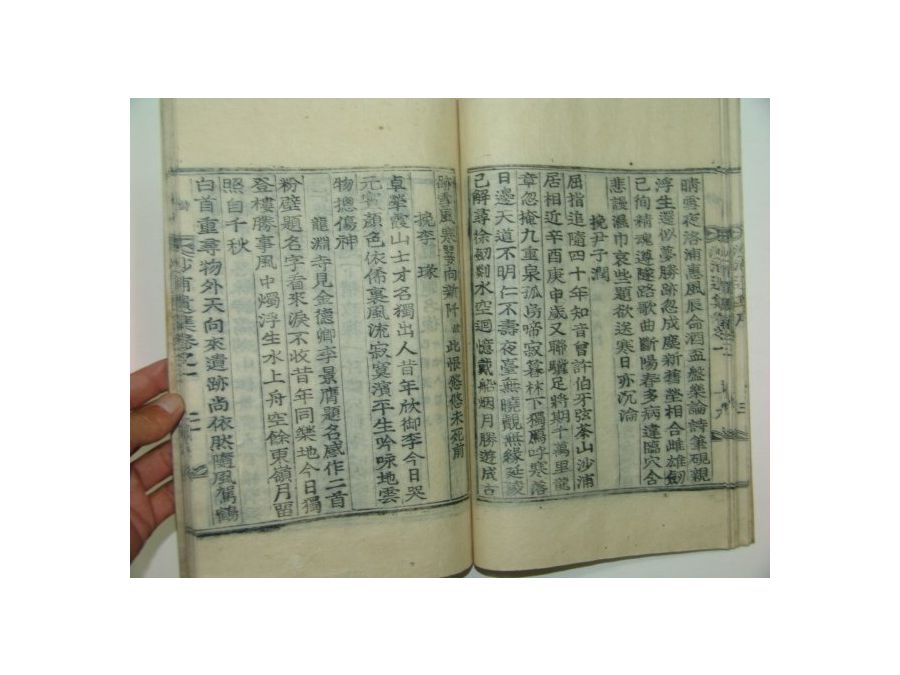 晴雪夜洛浦惠風辰命酒盃盤樂論詩筆硯親
浮生還似夢勝跡忽成塵新舊塋相合雌雄劒
已徇精魂導隧路歌曲斷陽春多病違臨穴含
悲謾濕巾哀些題欲送寒日亦沉淪
挽尹子潤
屈指追隨四十年知音曾許伯牙弦茶山沙浦
居相近辛酉庚申歲又聯驥足將期千萬里龍
章忽掩九重泉孤鳥啼寂暮林下獨鴈呼寒落
日邊天道不明仁不壽夜臺無曉覩無緣延陵
已解尋徐劒剡水空迴憶戴船烟月勝遊成古
跡雪風寒 向新阡 此恨悠悠未死前
挽李瑑
卓犖霞山士才名獨出人昔年欣御李今日哭
元賓顔色依俙裏風流寂寞濱平生吟咏地雲
物摠傷神
龍淵寺見金德卿李景膺題名感作二首
粉壁題名字看來淚不收昔年同樂地今日獨
登樓勝事風中燭浮生水上舟空餘東嶺月留
照白千秋
白首重尋物外天向來遺跡尚依然隨風駕鶴
沙浦遺集卷之一